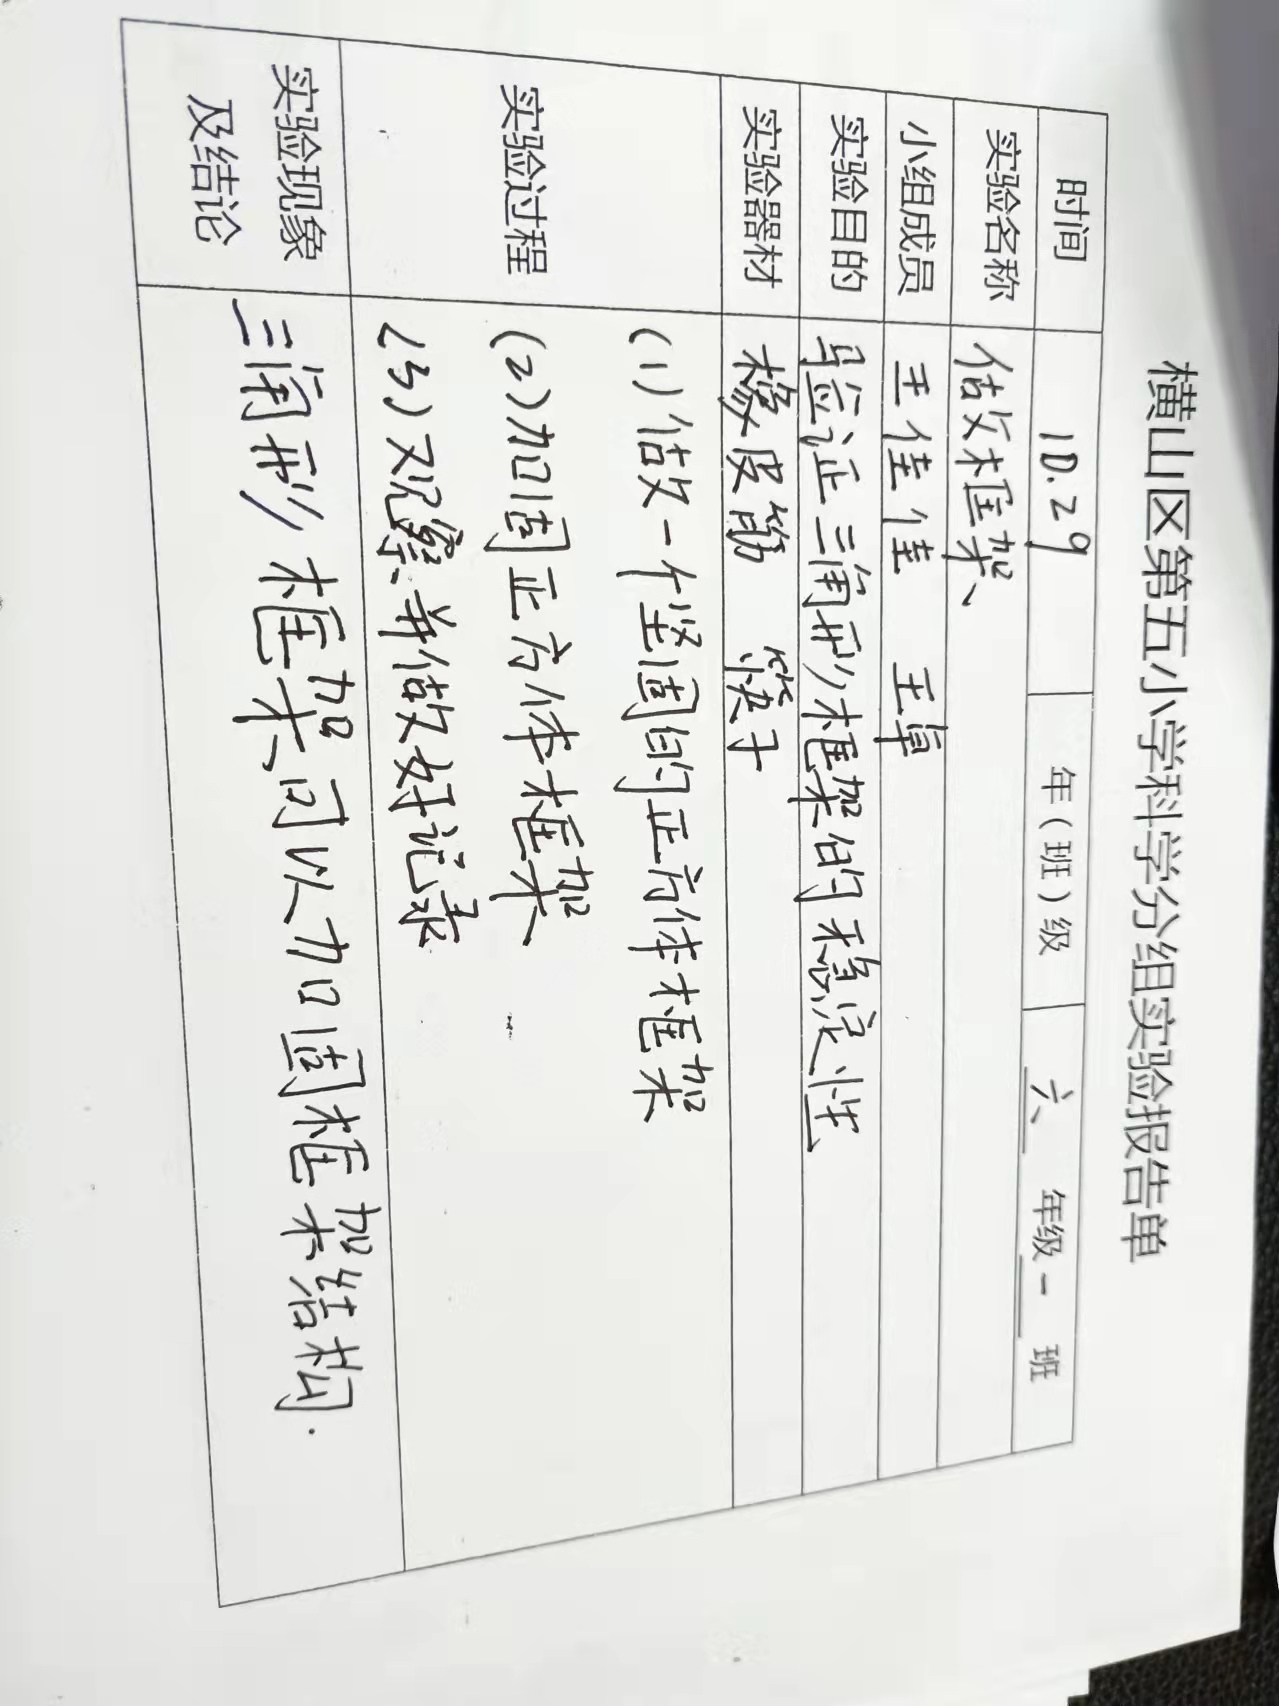 横山区第五小学科学分组实验报告单
时间 10.29 年(班)级 六 年级 一 班
实验名称 做框架
小组成员 王佳佳 王卓
实验目的 验证三角形框架的稳定性
实验器材 橡皮筋 筷子
实验过程 (1)做一个坚固的正方体框架
(2)加固正方体框架
(3)观察并做好记录
实验现象及结论 三角形框架可以加固框架结构.